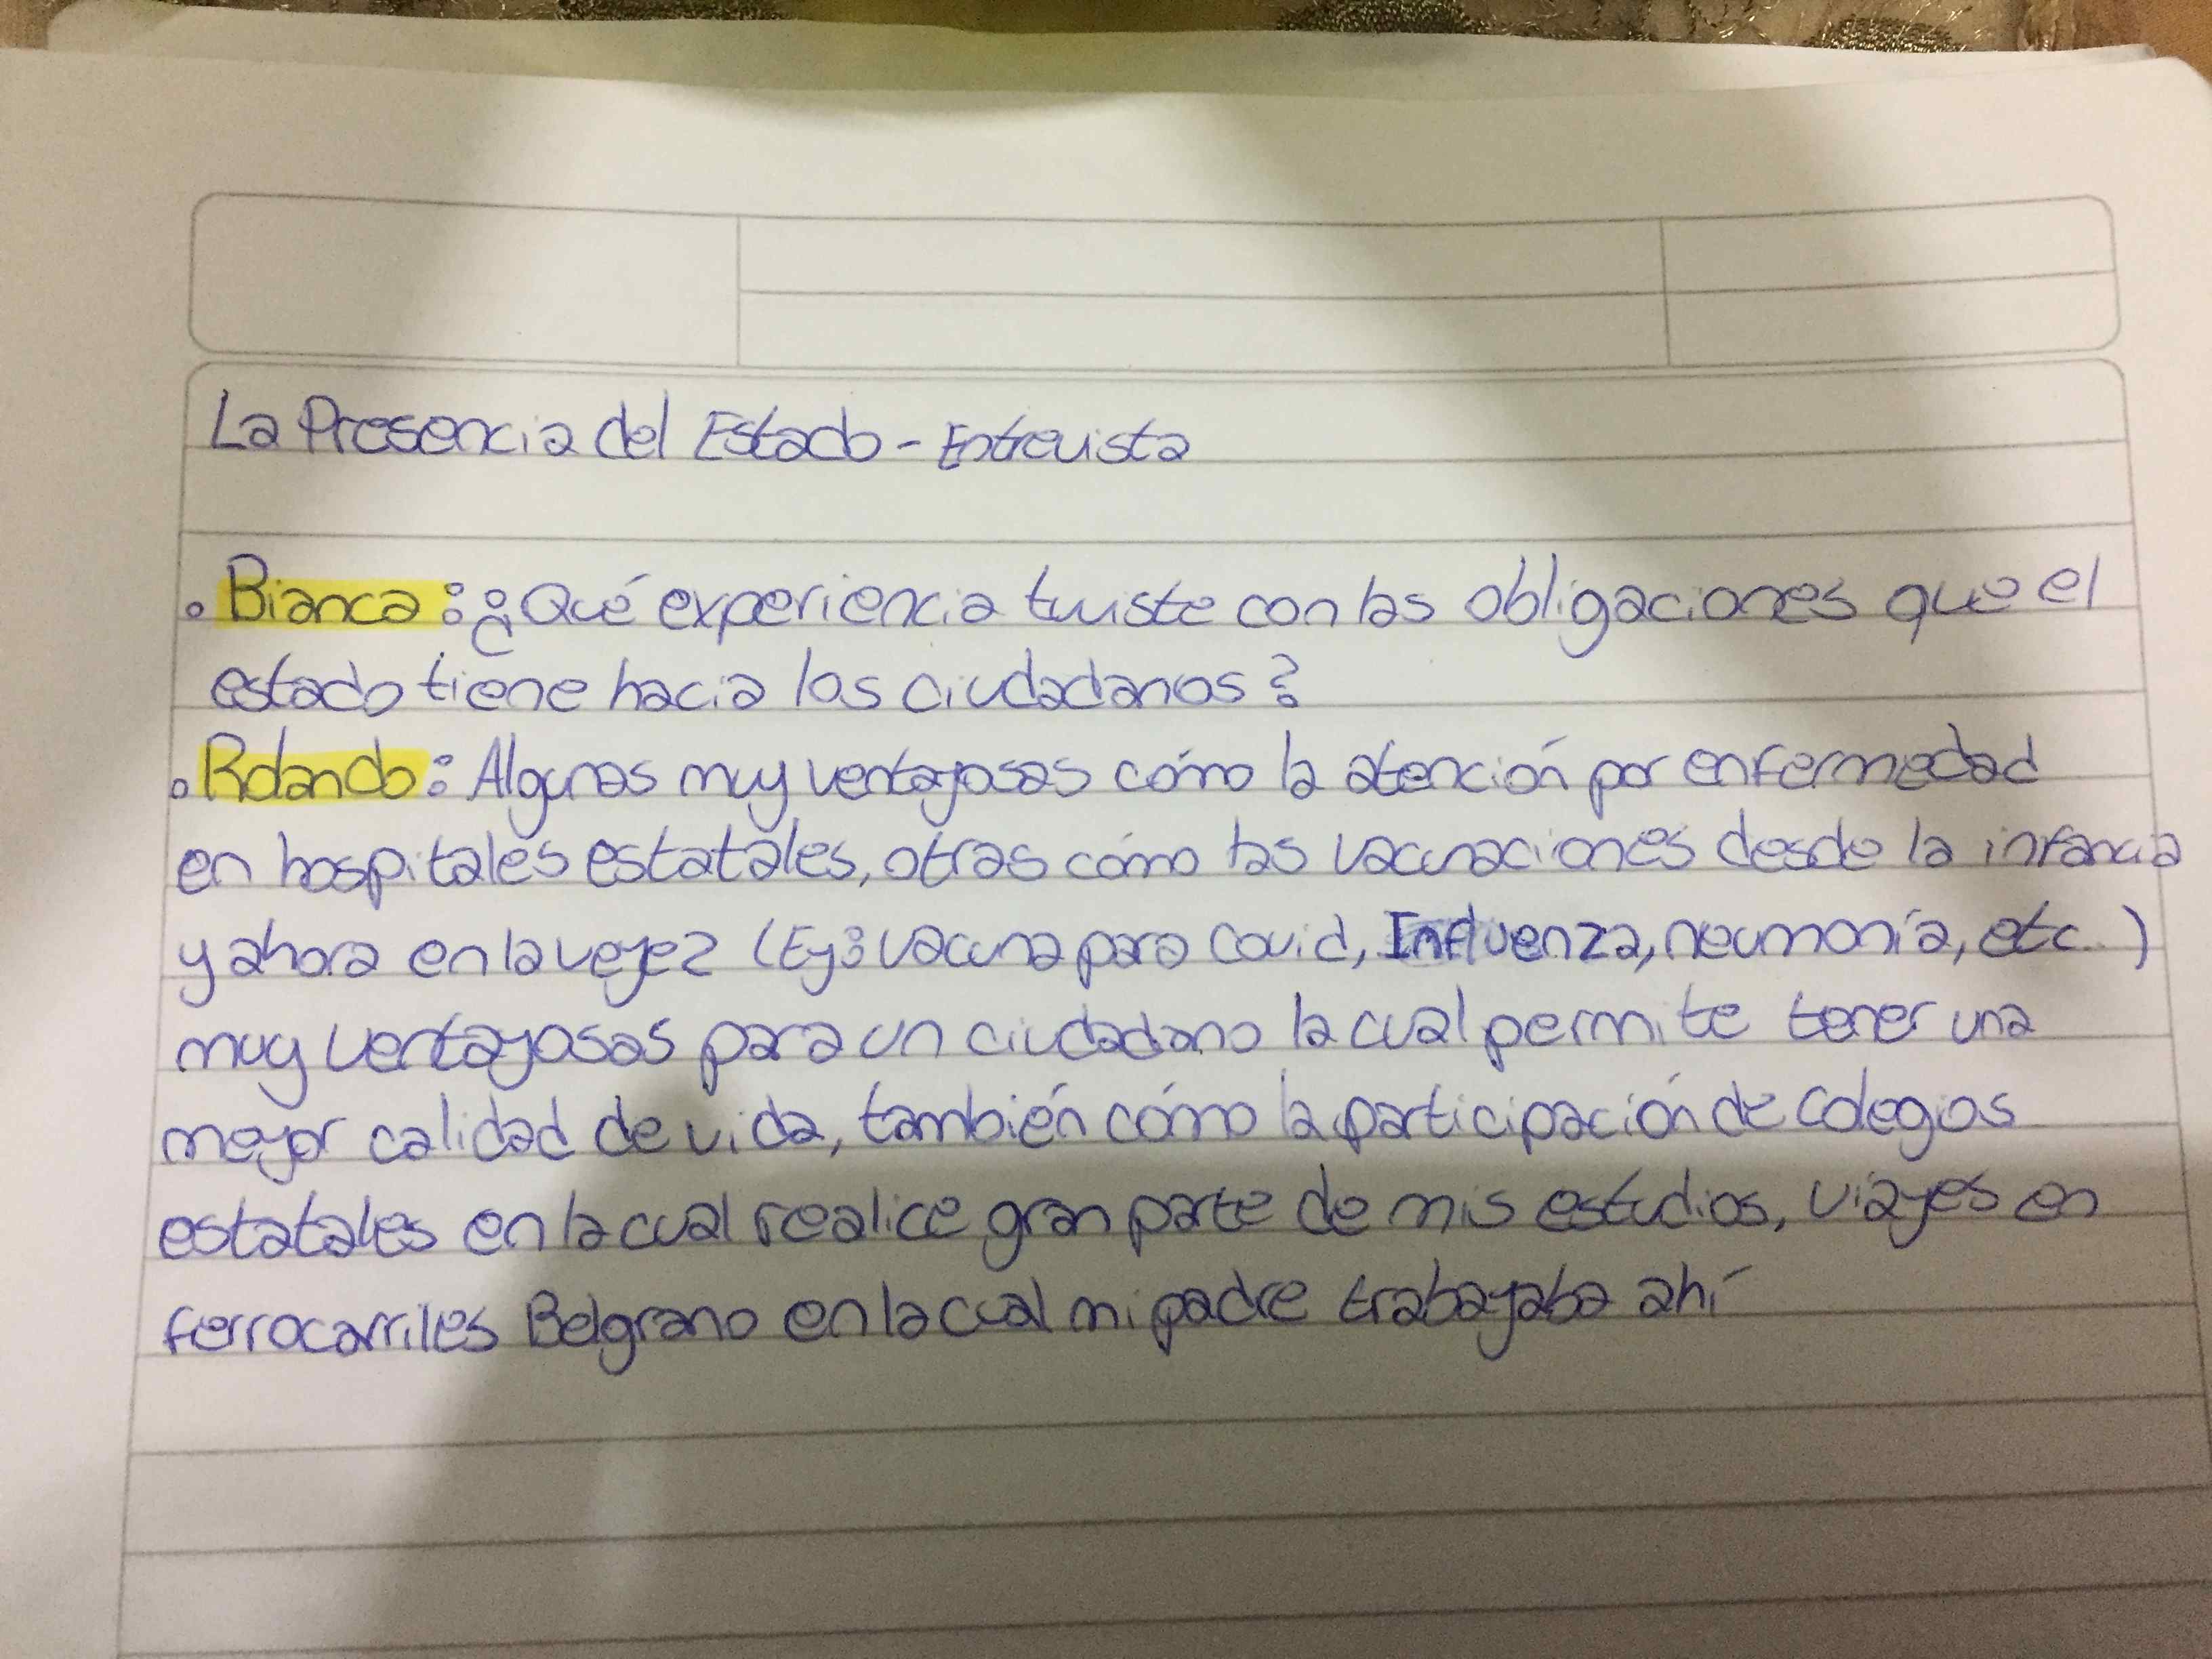 La Presencia del Estado - Entrevista
• Bianca: ¿Qué experiencia tuviste con las obligaciones que el
estado tiene hacia los ciudadanos?
• Rolando: Algunas muy ventajosas cómo la atención por enfermedad
en hospitales estatales, otras cómo las vacunaciones desde la infancia
y ahora en la vejez (Ej: vacuna para Covid, Influenza, neumonía, etc..)
muy ventajosas para un ciudadano la cual permite tener una
mejor calidad de vida, también cómo la participación de colegios
estatales en la cual realice gran parte de mis estudios, viajes en
ferrocarriles Belgrano en la cual mi padre trabajaba ahí